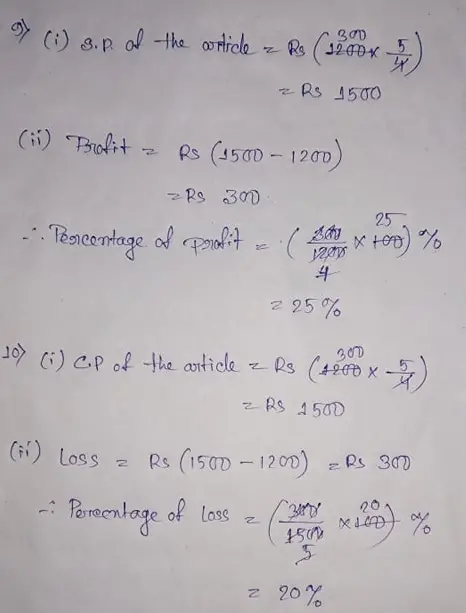 9) (i) S.P. of the article = Rs (1200 × 5/4) 300
= Rs 1500
(ii) Profit = Rs (1500 - 1200)
= Rs 300.
∴ Percentage of profit = (300/1200 × 100) % 4 25
= 25%
10) (i) C.P of the article = Rs (1200 × 5/4) 300
= Rs 1500
(ii) Loss = Rs (1500 - 1200) = Rs 300
∴ Percentage of loss = (300/1500 × 100) % 5 20
= 20%